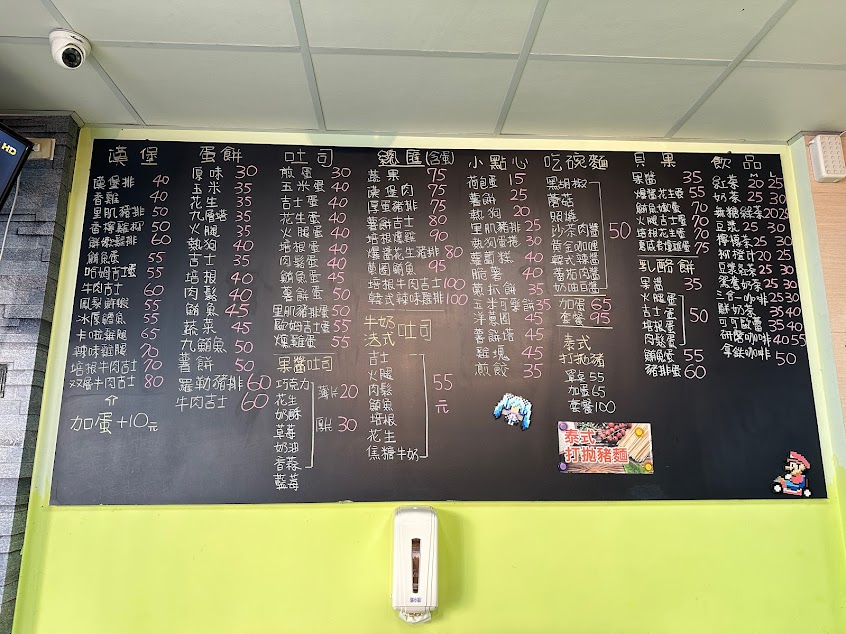 HD
漢堡
漢堡排 40
香雞 40
里肌豬排 50
香檸雞柳 50
鮮嫩雞排 60
鮪魚蛋 55
哈姆吉士蛋 55
牛肉吉士 60
鳳梨鮮蝦 55
冰厚鱈魚 55
卡啦雞腿 65
辣味雞腿 70
培根牛肉吉士 70
双層牛肉吉士 80
加蛋+10元
蛋餅
原味 30
玉米 35
花生 35
九層塔 35
火腿 35
熱狗 40
吉士 35
培根 40
肉鬆 40
鮪魚 45
蔬菜 45
九鮪魚 50
薯餅 50
羅勒豬排 60
牛肉吉士 60
吐司
煎蛋 30
玉米蛋 40
吉士蛋 40
花生蛋 40
火腿蛋 40
培根蛋 40
肉鬆蛋 40
鮪魚蛋 45
薯餅蛋 50
里肌豬排蛋 50
歐姆吉士蛋 55
燻雞蛋 55
果醬吐司
巧克力
花生
奶酥
草莓
奶油
香蒜
藍莓
薄片 20
厚片 30
(含蛋)
蔬果 75
漢堡肉 75
厚蛋豬排 75
薯餅吉士 80
培根燻雞 90
爆醬花生豬排 80
薯圈鮪魚 95
培根牛肉吉士 100
韓式辣味雞排 100
牛奶
法式 吐司
吉士
火腿
肉鬆
鮪魚
培根
花生
焦糖牛奶
55
元
小點心
荷包蛋 15
薯餅 25
熱狗 20
里肌豬排 25
熱狗蛋捲 30
蘿蔔糕 40
脆薯 40
黃抓餅 35
玉米可樂餅 35
洋蔥圈 45
薯餅塔 45
雞塊 45
煎餃 35
吃碗麵
黑胡椒
蘑菇
照燒
沙茶肉醬
黃金咖哩
韓式辣醬
番茄肉醬
奶油白醬
50
加蛋 65
套餐 95
泰式
打拋豬
單点 55
加蛋 65
套餐 100
泰式
打拋豬麵
貝果
果醬 35
爆醬花生蛋 55
鮪魚嫩蛋 70
火腿吉士蛋 70
培根吉士蛋 70
75
乳酪餅
果醬 35
火腿蛋
吉士蛋
培根蛋
肉鬆蛋
50
鮪魚蛋 55
豬排蛋 60
飲品
M L
紅茶 20 25
奶茶 25 30
無糖綠茶 20 25
豆漿 25 30
檸檬茶 25 30
柳橙汁 20 25
豆漿紅茶 25 30
鴛鴦奶茶 25 30
三合一咖啡 25 30
鮮奶茶 35 40
可可歐蕾 35 40
研磨咖啡 40 55
拿鐵咖啡 50